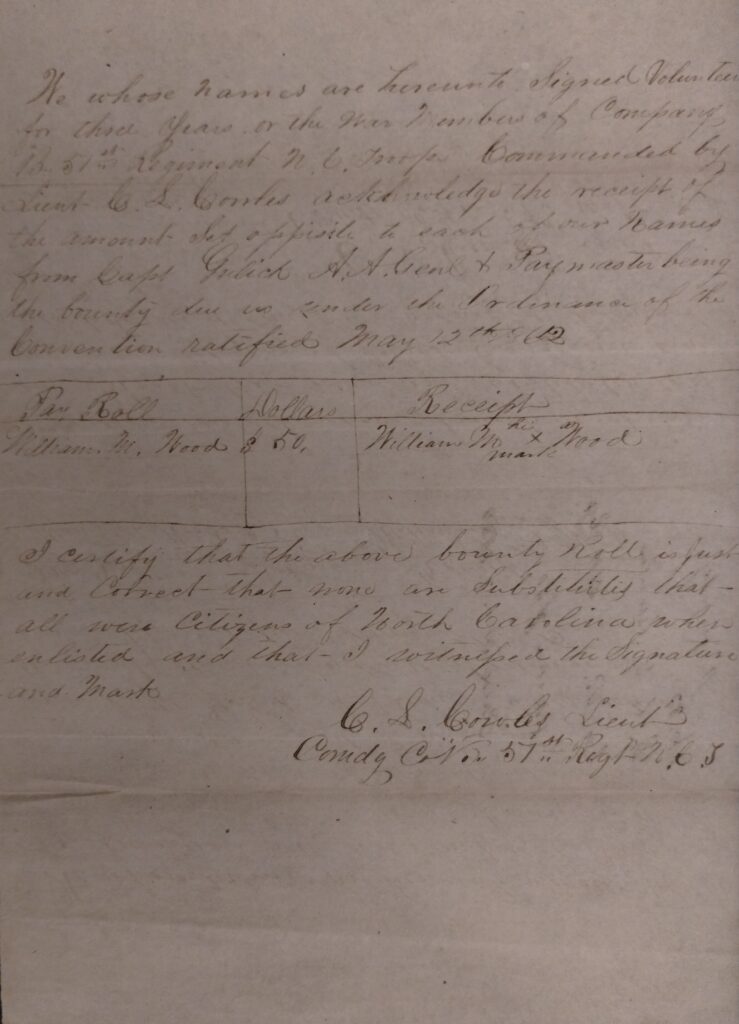 We whose names are hereunto Signed Volunteer
for three Years or the War Members of Company
B. 51st Regiment N. C. Troops Commanded by
Lieut C. L. Cowles acknowledge the receipt of
the amount Set opposite to each of our Names
from Capt Gulick A. A. Genl & Paymaster being
the bounty due us under the Ordinance of the
Convention ratified May 12th 1862
Pay Roll Dollars Receipt
William M. Wood $ 50. William M his x mark Wood
I certify that the above bounty Roll is just
and Correct that none are Substitutes that
all were Citizens of North Carolina when
enlisted and that I witnessed the Signature
and Mark
C. L. Cowles Lieut
Comdg Co 51st Regt N. C. T